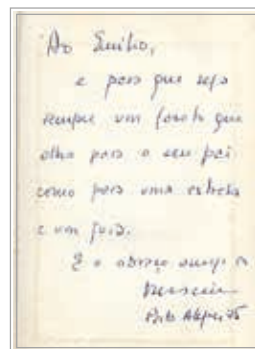 Ao Emilio,
e para que seja
sempre um garoto que
olha para o seu pai
como para uma estrela
e um guia.
E o abraço amigo do
Porto Alegre, 75